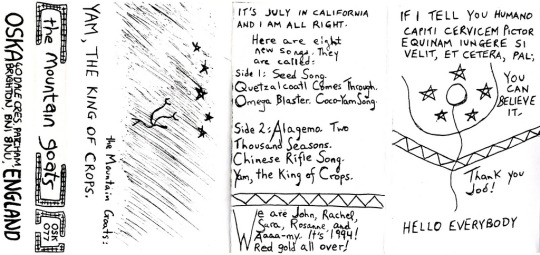 OSKA 60 DALE CRES, PATCHAM
BRIGHTON, BN1 8NU, ENGLAND
the mountain goats
OSK
077
YAM, THE KING OF CROPS.
the Mountain Goats:
IT'S JULY IN CALIFORNIA
AND I AM ALL RIGHT.
Here are eight
new songs. They
are called:
Side 1: Seed Song.
Quetzalcoatl Comes Through.
Omega Blaster. Coco-Yam Song.
Side 2: Alagemo. Two
Thousand Seasons.
Chinese Rifle Song.
Yam, the King of Crops.
We are John, Rachel,
Sara, Rosanne, and
Aaaa-my. It's 1994!
Red gold all over!
IF I TELL YOU HUMANO
CAPITI CERVICEM PICTOR
EQUINAM IUNGERE SI
VELIT, ET CETERA, PAL;
YOU
CAN
BELIEVE
IT.
Thank you
Joe!
HELLO EVERYBODY